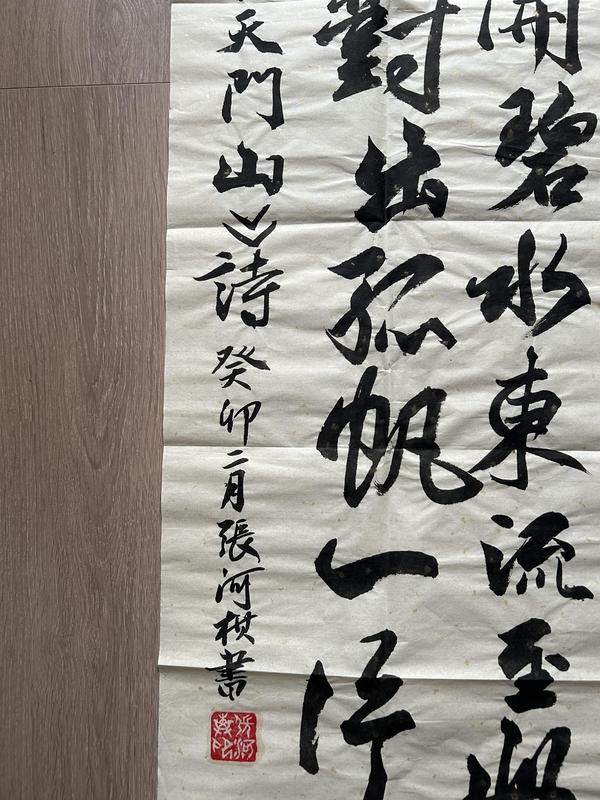 開碧水東流至此
對出孤帆一片
天門山之詩 癸卯二月張河棋書